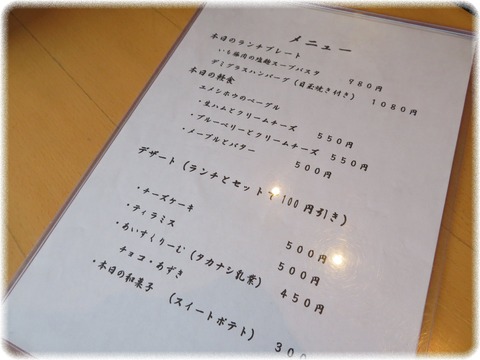 メニュー
本日のランチプレート
いち豚肉の塩麹スープパスタ 980円
デミグラスハンバーグ(目玉焼き付き) 1080円
本日の軽食
エメシホウのベーグル
・生ハムとクリームチーズ 550円
・ブルーベリーとクリームチーズ 550円
・メープルとバター 500円
デザート(ランチとセットで100円引き)
・チーズケーキ 500円
・ティラミス 500円
・あいすくりーむ(タカナシ乳業) 450円
チョコ・あずき
・本日の和菓子 (スイートポテト) 300